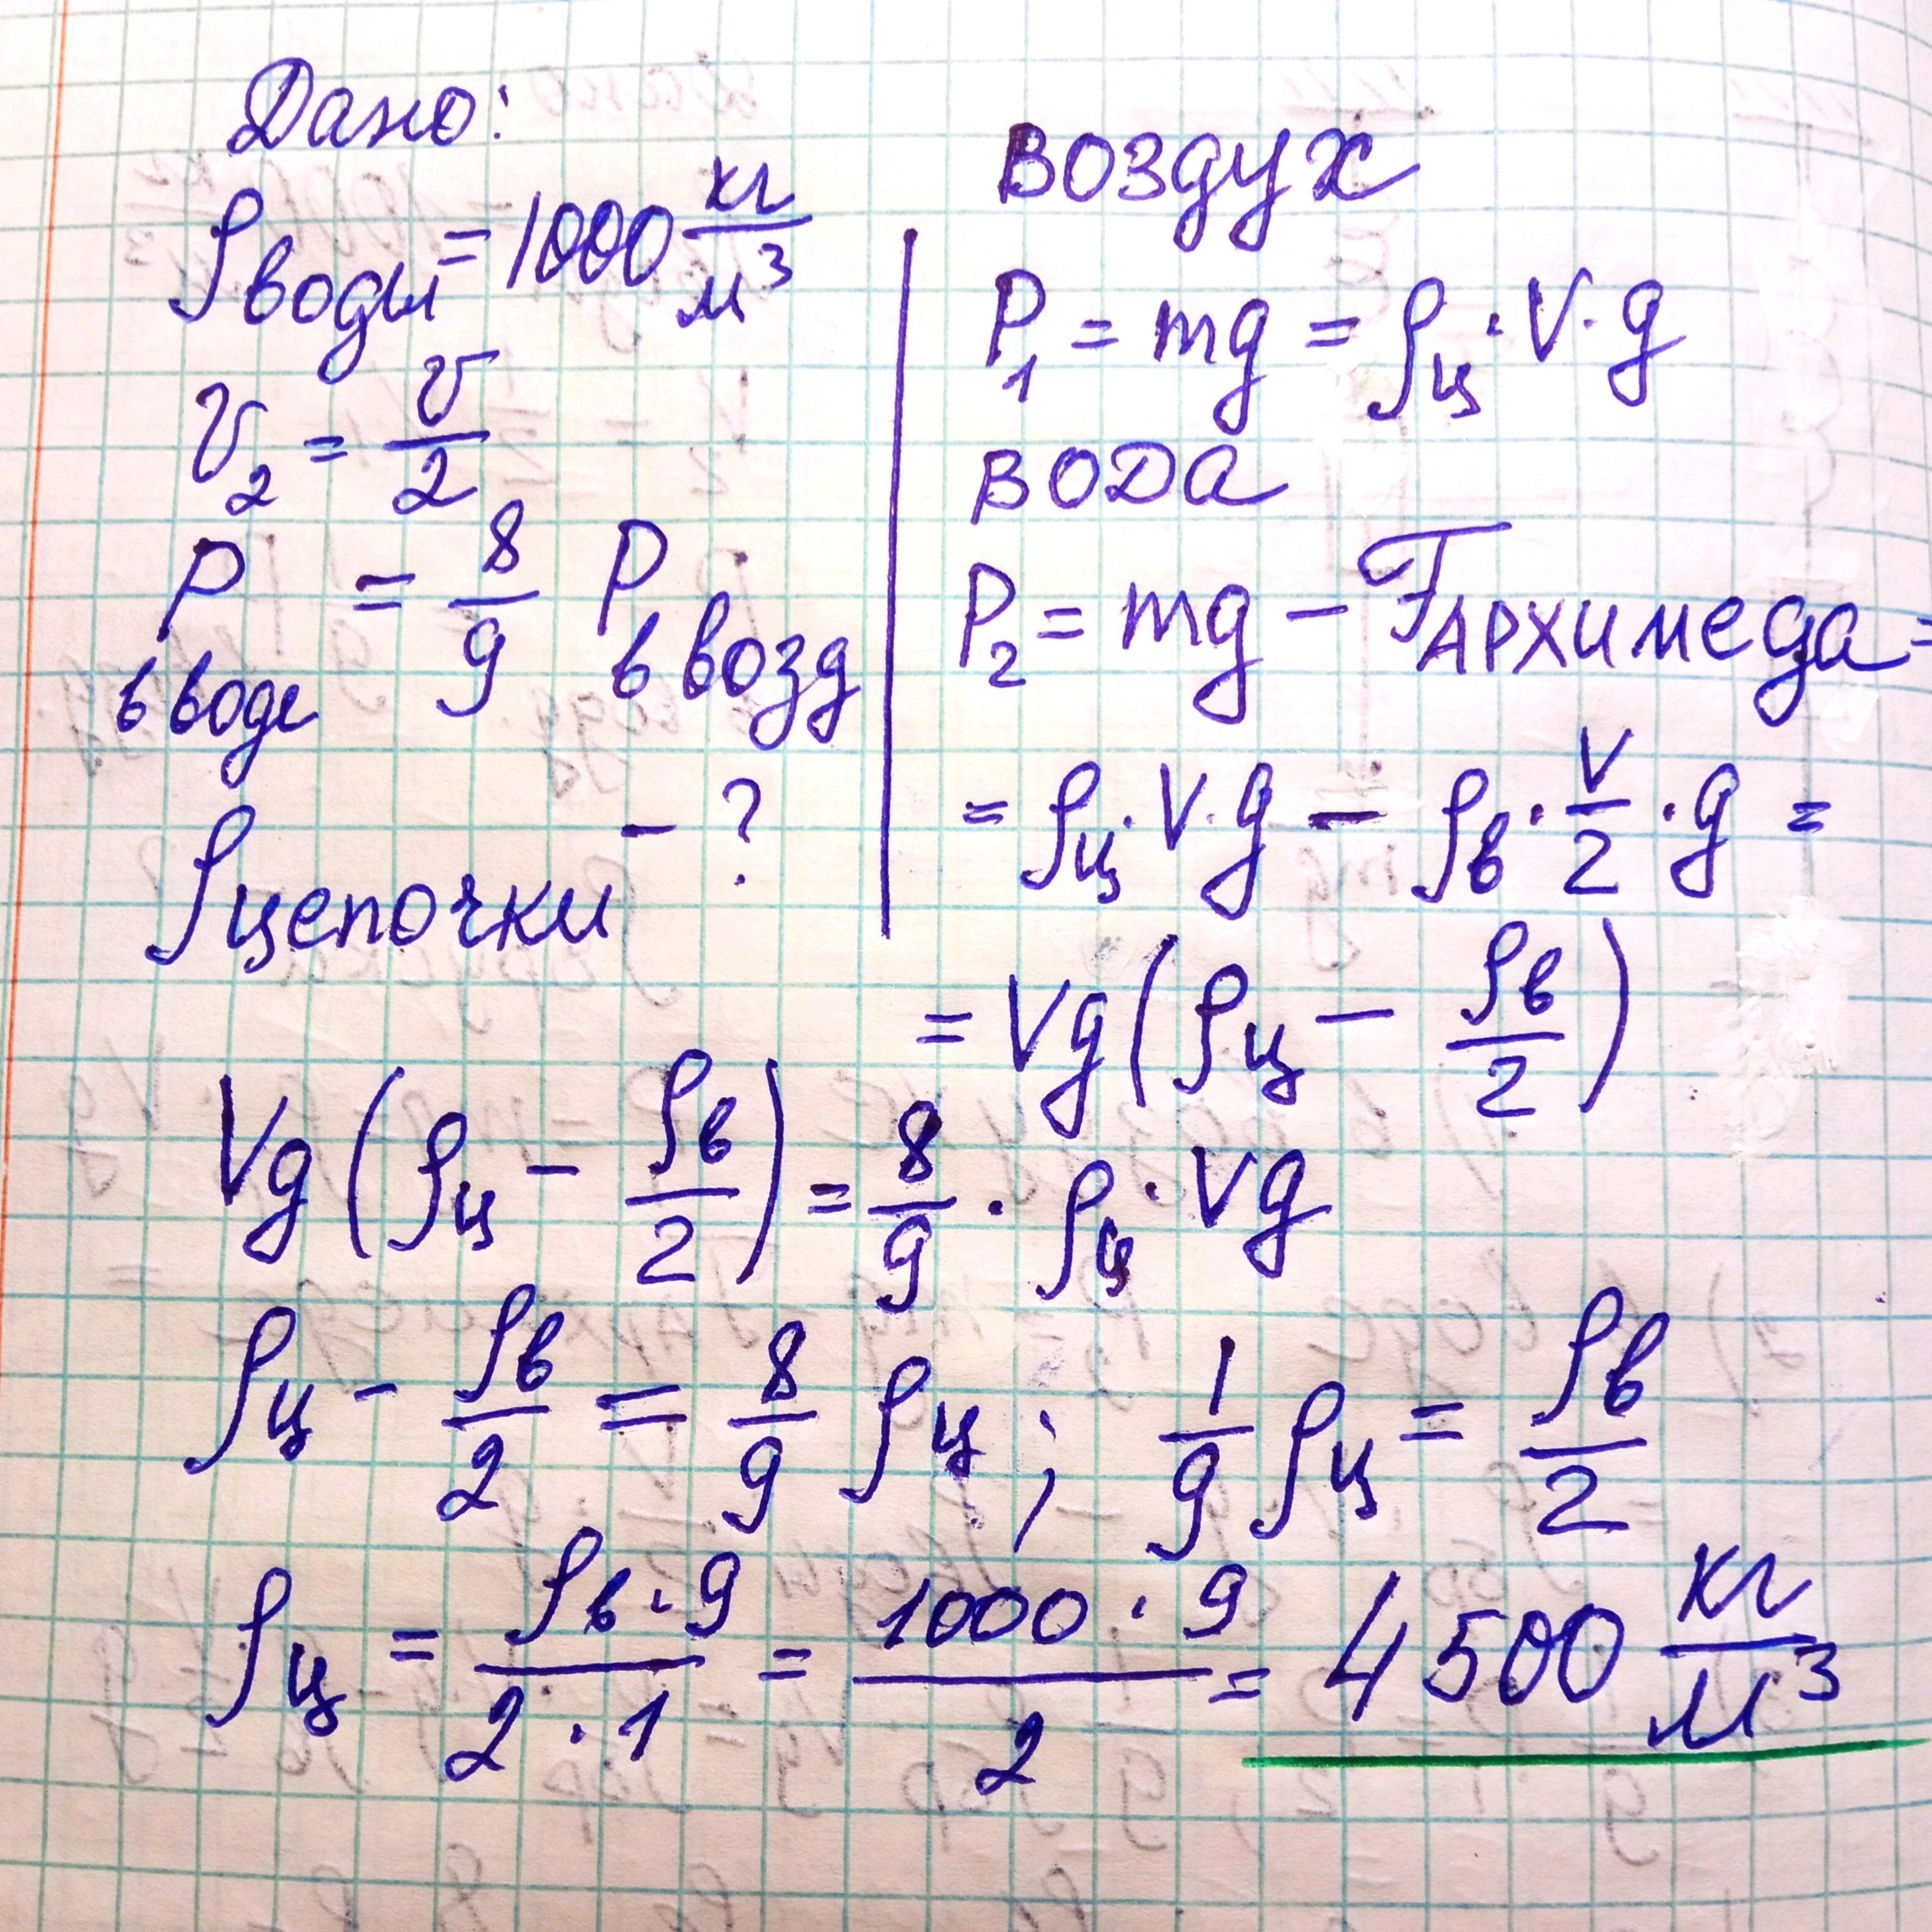 Дано:
ρводы = 1000 кг/м³
V₂ = V/2
P в воде = 8/9 P в возд
ρцепочки - ?
воздух
P₁ = mg = ρц · V · g
вода
P₂ = mg - Fархимеда =
= ρц · V · g - ρв · V/2 · g =
= Vg(ρц - ρв/2)
Vg(ρц - ρв/2) = 8/9 · ρц · Vg
ρц - ρв/2 = 8/9 ρц ; 1/9 ρц = ρв/2
ρц = ρв · 9/2 · 1 = 1000 · 9/2 = 4500 кг/м³